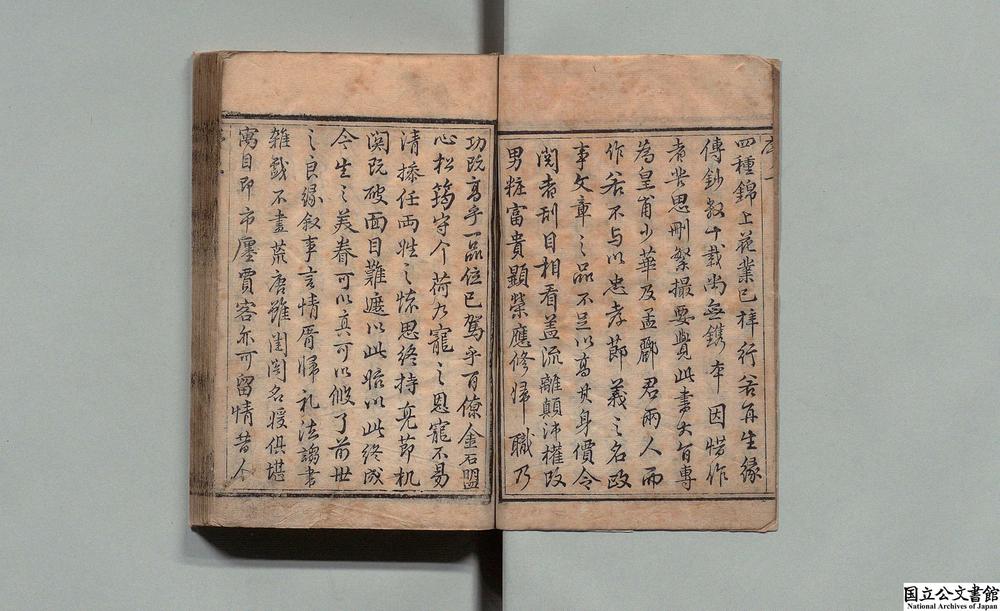 序
四種錦上花業已梓行若再生緣
傳鈔數十載尚無鐫本因惜作
者苦思刪繁撮要覺此書大旨專
為皇甫少華及孟酈君兩人而
作若不与以忠孝節義之名政
事文章之品不足以高其身價令
閱者刮目相看蓋流離顛沛權改
男粧富貴顯榮應修歸職乃
功既高乎一品位已駕乎百僚金石盟
心松筠守介荷九寵之恩寵不易
清操任兩姓之怺思終持亮節机
関既破面目難遮以此始以此終成
今生之美眷可以真可以微了前世
之良緣叙事言情厝歸礼法謁書
雜戲不盡荒唐雖閨閣名媛俱堪
寓目即市廛賈客亦可留情昔人
国立公文書館
National Archives of Japan